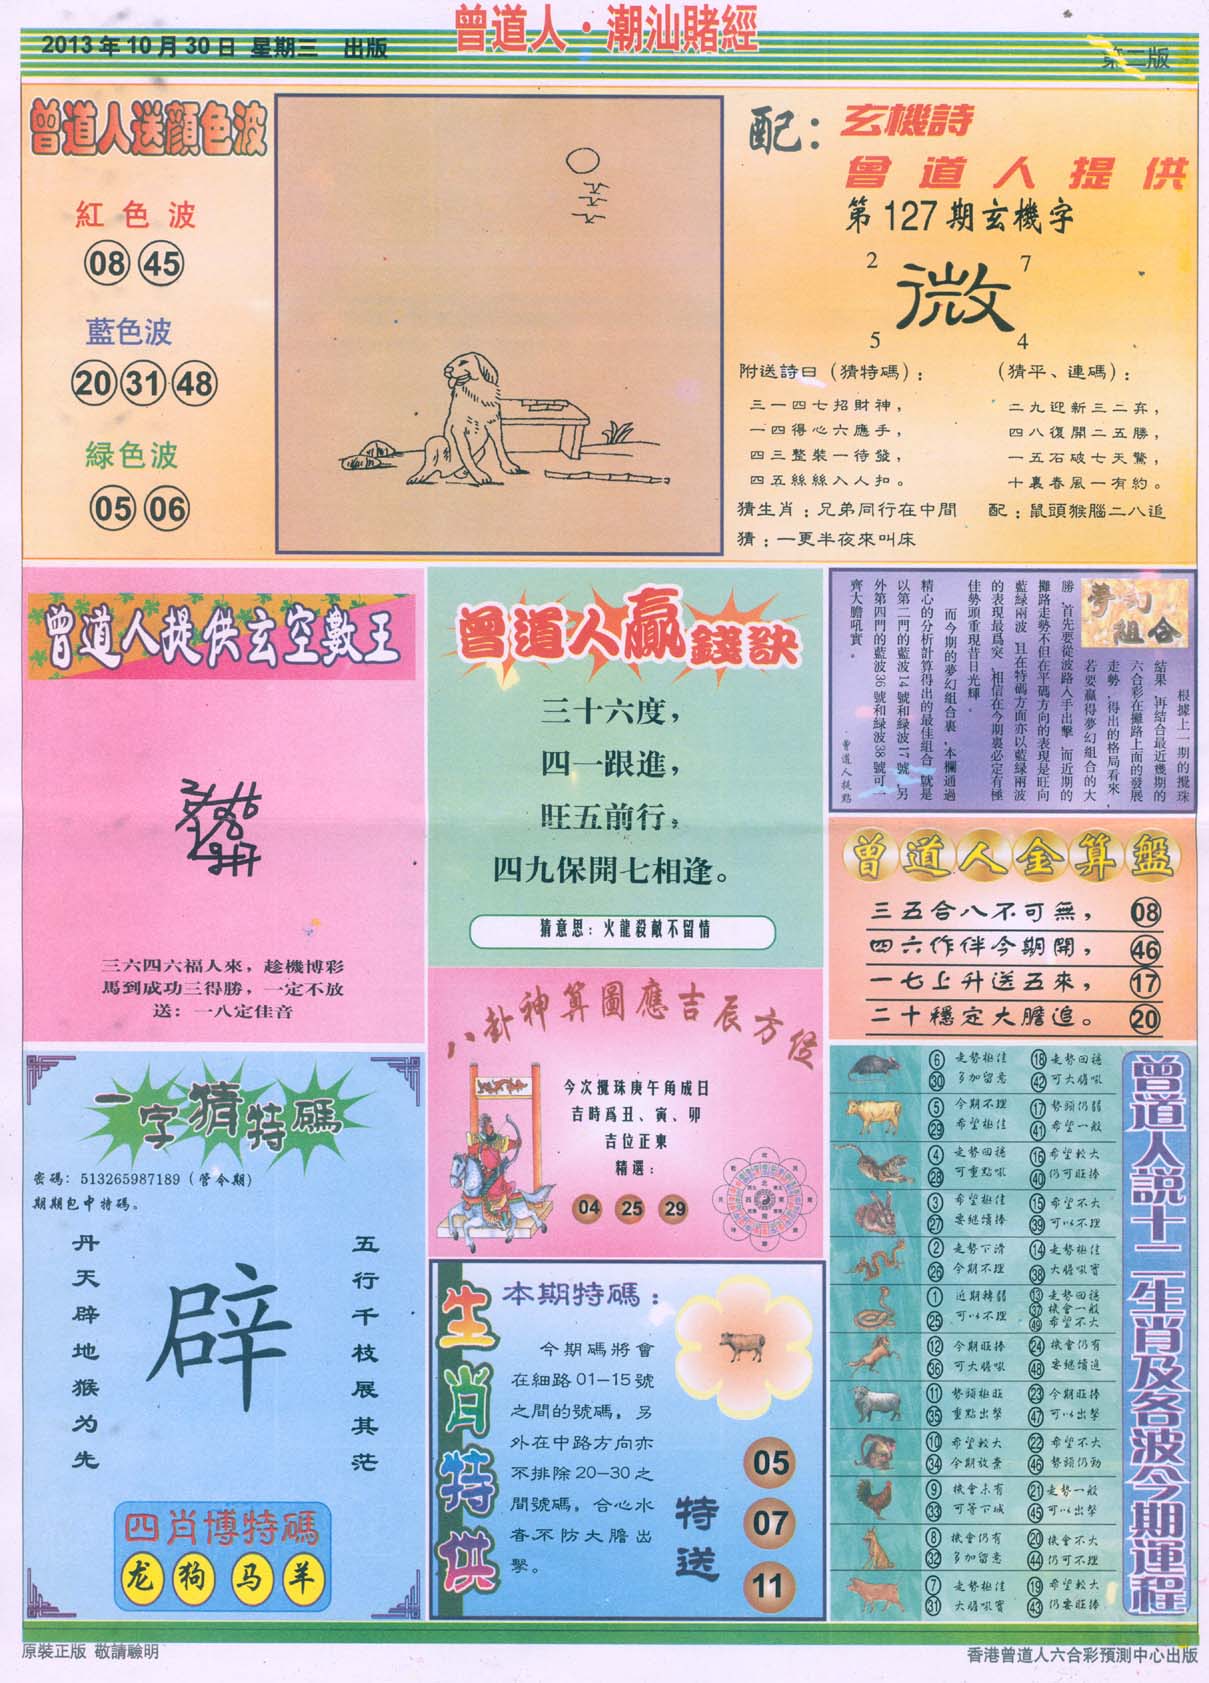 曾道人·潮汕賭經
2013年10月30日 星期三 出版
第二版
曾道人送顏色波
紅色波
08 45
藍色波
20 31 48
綠色波
05 06
配：
玄機詩
曾道人提供
第127期玄機字
2 7
微
5 4
附送詩曰（猜特碼）：
三一四七招財神，
一四得心六應手，
四三整裝一待發，
四五絲絲入人扣。
（猜平、連碼）：
二九迎新三二弃，
四八復開二五勝，
一五石破七天驚，
十裏春風一有約。
猜生肖：兄弟同行在中間
配：鼠頭猴腦二八追
猜：一更半夜來叫床
曾道人提供玄空數王
三六四六福人來，趁機博彩
馬到成功三得勝，一定不放
送：一八定佳音
曾道人贏錢訣
三十六度，
四一跟進，
旺五前行，
四九保開七相逢。
猜意思：火龍殺敵不留情
夢幻組合
根據上一期的攪珠
結果，再結合最近幾期的
六合彩在攤路上面的發展
走勢，得出的格局看來，
若要贏得夢幻組合的大
勝，首先要從波路入手出擊，而近期的
攤路走勢不但在平碼方向的表現是旺向
藍綠兩波，且在特碼方面亦以藍綠兩波
的表現最爲突，相信在今期裏必定有極
佳勢頭重現昔日光輝。
而今期的夢幻組合裏，本欄通過
精心的分析計算得出的最佳組合就是
以第二門的藍波14號和綠波17號，另
外第四門的藍波36號和綠波38號可一
齊大膽吼實。
曾道人提點
曾道人金算盤
三五合八不可無， 08
四六作伴今期開， 46
一七上升送五來， 17
二十穩定大膽追。 20
八卦神算圖應吉辰方位
今次攪珠庚午角成日
吉時爲丑、寅、卯
吉位正東
精選：
04 25 29
一字猜特碼
密碼：513265987189（管令期）
期期包中特碼。
丹天辟地猴为先
辟
五行千枝展其茫
四肖博特碼
龙 狗 马 羊
生肖特供
本期特碼：
今期碼將會
在細路01-15號
之間的號碼，另
外在中路方向亦
不排除20-30之
間號碼，合心水
者不防大膽出
擊。
特送
05
07
11
曾道人說十二生肖及各波今期運程
6 走勢極佳 18 走勢回穩
30 多加留意 42 可大膽吼
5 今期不理 17 勢頭仍弱
29 希望極佳 41 希望一般
4 走勢回穩 16 希望較大
28 可重點吼 40 仍可旺捧
3 希望極佳 15 希望不大
27 要繼續捧 39 可以不理
2 走勢下滑 14 走勢極佳
26 今期不理 38 大膽吼實
1 近期轉弱 13 走勢回穩
37 機會一般
25 可以不理 49 希望不大
12 今期旺捧 24 機會仍有
36 可大膽吼 48 要繼續追
11 勢頭極旺 23 今期旺捧
35 重點出擊 47 可以出擊
10 希望較大 22 希望不大
34 今期放棄 46 勢頭仍勁
9 機會未有 21 走勢一般
33 可等下城 45 可以出擊
8 機會仍有 20 機會不大
32 多加留意 44 仍可不理
7 走勢極佳 19 希望較大
31 大膽吼實 43 仍要旺捧
原裝正版 敬請驗明
香港曾道人六合彩預測中心出版